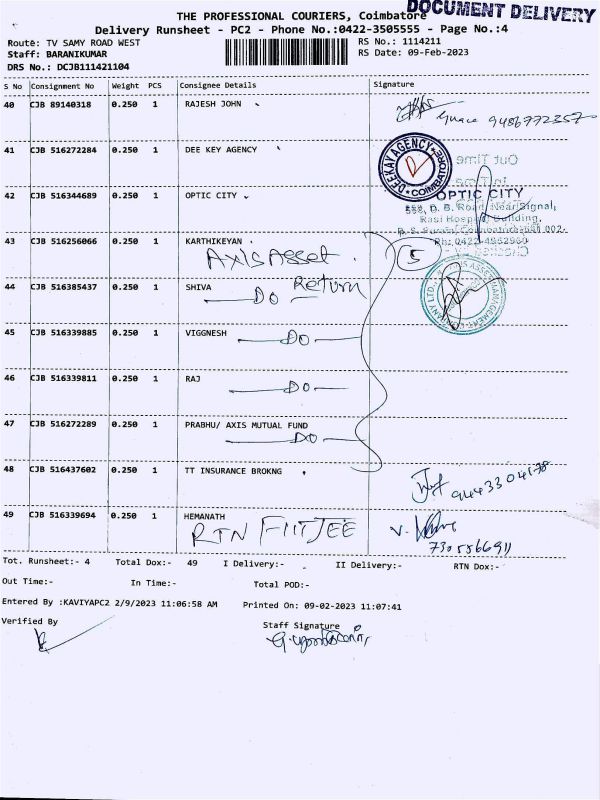 DOCUMENT DELIVERY
THE PROFESSIONAL COURIERS, Coimbatore
Delivery Runsheet - PC2 - Phone No.:0422-3505555 - Page No.:4
Route: TV SAMY ROAD WEST
RS No.: 1114211
Staff: BARANIKUMAR
RS Date: 09-Feb-2023
DRS No.: DCJB111421104
S No Consignment No Weight PCS Consignee Details Signature
40 CJB 89140318 0.250 1 RAJESH JOHN
9486772357
41 CJB 516272284 0.250 1 DEE KEY AGENCY
DEEKAY AGENCY COIMBATORE
Out Time
42 CJB 516344689 0.250 1 OPTIC CITY
OPTIC CITY
D. B. Road, Near Signal,
Rasi Hospital Building,
Coimbatore-641 002.
43 CJB 516256066 0.250 1 KARTHIKEYAN
Axis Asset.
5
44 CJB 516385437 0.250 1 SHIVA
DO Return
45 CJB 516339885 0.250 1 VIGGNESH
DO
46 CJB 516339811 0.250 1 RAJ
DO
47 CJB 516272289 0.250 1 PRABHU/ AXIS MUTUAL FUND
DO
48 CJB 516437602 0.250 1 TT INSURANCE BROKNG
49 CJB 516339694 0.250 1 HEMANATH
RTN FIITJEE
7305866911
Tot. Runsheet:- 4 Total Dox:- 49 I Delivery:- II Delivery:- RTN Dox:-
Out Time:- In Time:- Total POD:-
Entered By :KAVIYAPC2 2/9/2023 11:06:58 AM Printed On: 09-02-2023 11:07:41
Verified By
Staff Signature